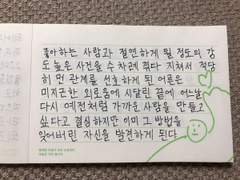 좋아하는 사람과 절연하게 될 정도의 강
도 높은 사건을 수 차례 겪다 지쳐서 적당
히 먼 관계를 선호하게 된 어른은
미지근한 외로움에 시달린 끝에 어느날
다시 예전처럼 가까운 사람을 만들고
싶다고 결심하지만 이미 그 방법을
잊어버린 자신을 발견하게 된다